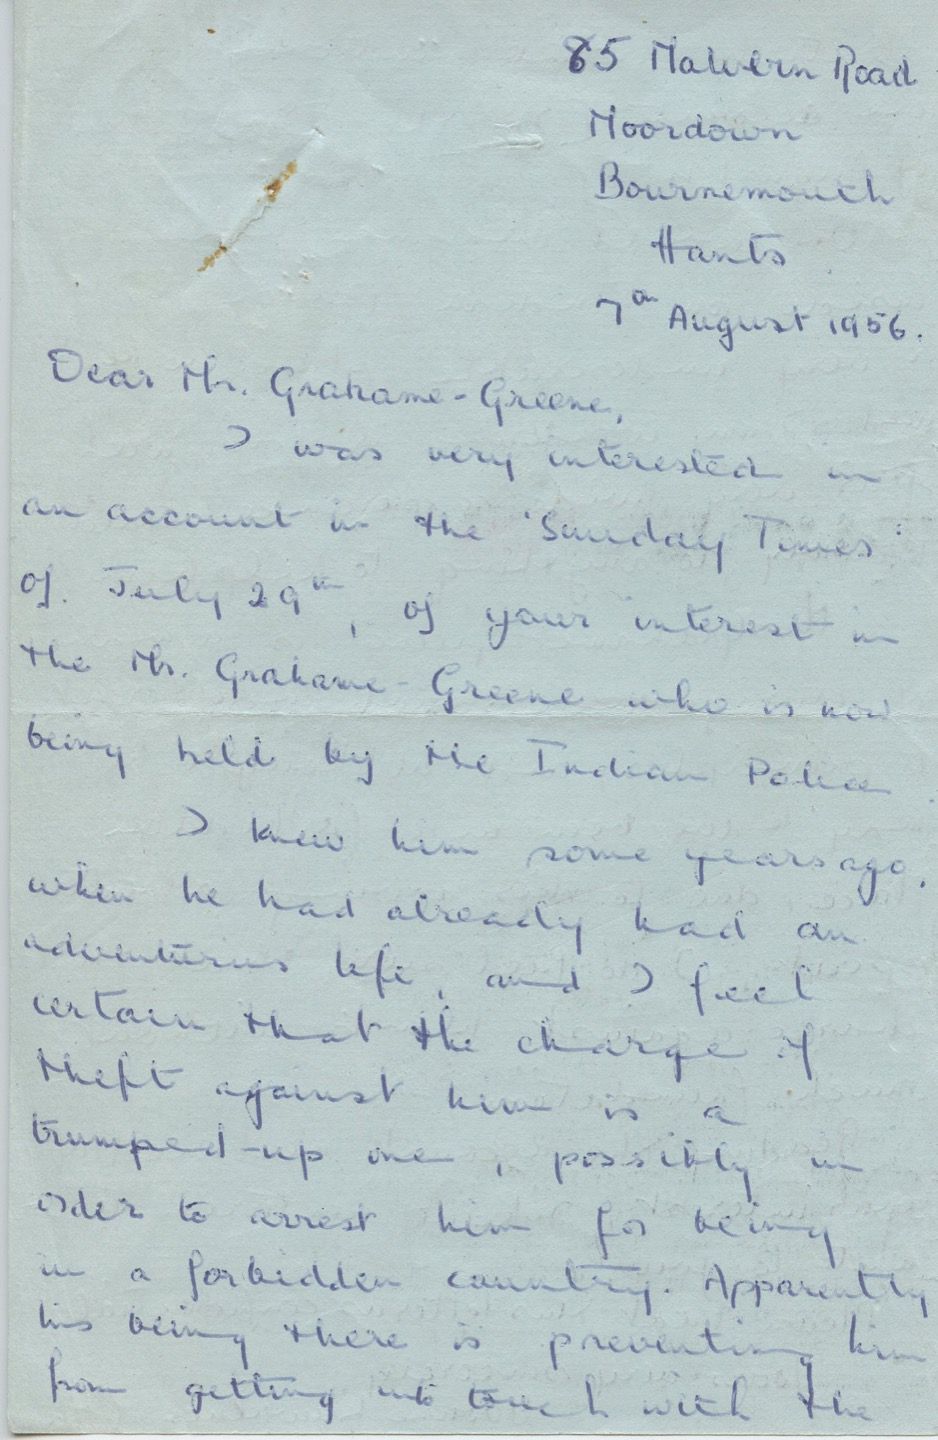 85 Malvern Road
Moordown
Bournemouth
Hants
7th August 1956.
Dear Mr. Grahame-Greene,
I was very interested in
an account in the 'Sunday Times'
of July 29th, of your interest in
the Mr. Grahame-Greene who is now
being held by the Indian Police.
I knew him some years ago,
when he had already had an
adventurous life, and I feel
certain that the charge of
theft against him is a
trumped-up one, possibly in
order to arrest him for being
in a forbidden country. Apparently
his being there is preventing him
from getting into touch with the